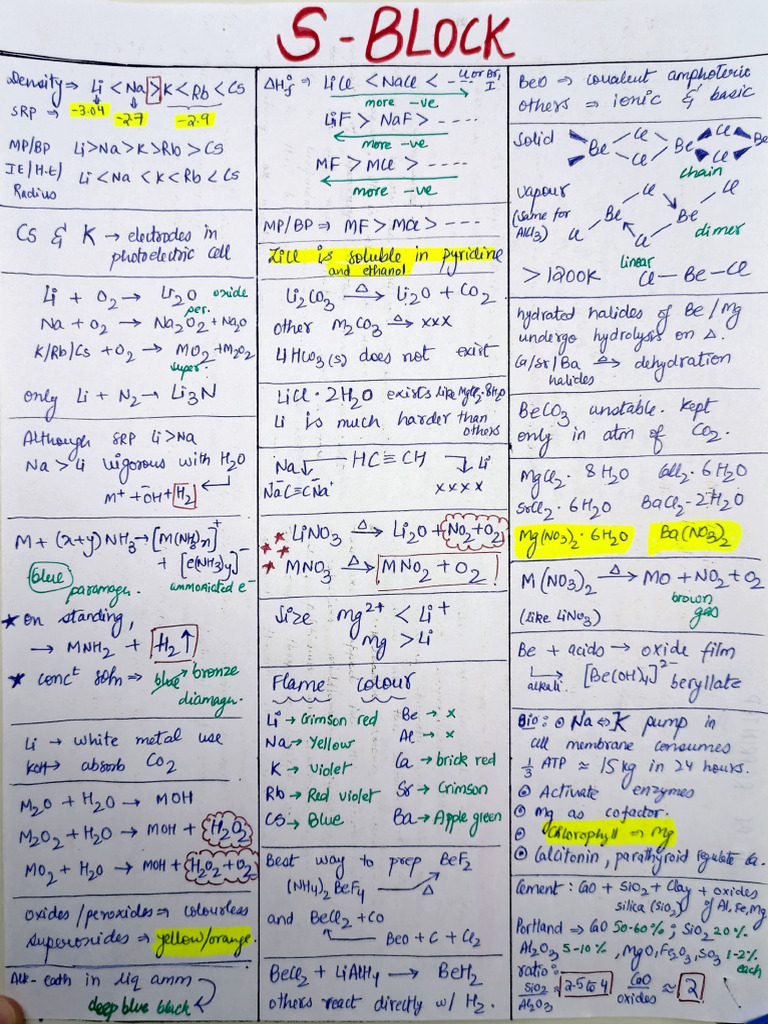 S-BLOCK
Density ⇒ Li < Na > K < Rb < Cs
SRP → -3.04 -2.7 -2.9
MP/BP Li>Na>K>Rb>Cs
IE/H.E/ Radius Li<Na<K<Rb<Cs
Cs & K → electrodes in
photoelectric cell
Li + O2 → Li2O oxide
per.
Na + O2 → Na2O2 + Na2O
K/Rb/Cs + O2 → MO2 + M2O2
super.
only Li + N2 → Li3N
Although SRP Li>Na
Na > Li vigorous with H2O
M+ + ŌH + H2
M + (x+y)NH3 → [M(NH3)x]+
+ [e(NH3)y]-
blue paramagn. ammoniated e-
★ on standing,
→ MNH2 + H2↑
★ conct soln ⇒ blue → bronze
diamagn.
Li → white metal use
KOH → absorb CO2
M2O + H2O → MOH
M2O2 + H2O → MOH + H2O2
MO2 + H2O → MOH + H2O2 + O2
oxides/peroxides ⇒ colourless
superoxides ⇒ yellow/orange.
Alk-eath in liq amm
deep blue black
ΔHf° ⇒ LiCl < NaCl < --- Cl or Br, I
more -ve
LiF > NaF > ----
more -ve
MF > MCl > ----
more -ve
MP/BP ⇒ MF > MCl > ----
LiCl is soluble in pyridine
and ethanol
Li2CO3 →Δ Li2O + CO2
other M2CO3 →Δ xxx
LiHCO3(s) does not exist
LiCl·2H2O exists like MgCl2·8H2O
Li is much harder than
others
Na ← HC≡CH → Li
Na C≡C Na xxxx
★ LiNO3 →Δ Li2O + NO2 + O2
★★ MNO3 →Δ MNO2 + O2
Size Mg2+ < Li+
Mg > Li
Flame colour
Li → Crimson red Be → x
Na → Yellow Al → x
K → violet Ca → brick red
Rb → Red violet Sr → Crimson
CS → Blue Ba → Apple green
Best way to prep BeF2
(NH4)2BeF4 →Δ
and BeCl2 + CO
BeO + C + Cl2
BeCl2 + LiAlH4 → BeH2
others react directly w/ H2.
BeO ⇒ covalent amphoteric
others ⇒ ionic & basic
Solid Be Cl Cl Be Cl Cl Be
chain
vapour Cl Cl
(same for Be Be
AlCl3) Cl Cl dimer
linear
>1200K Cl — Be — Cl
hydrated halides of Be/Mg
undergo hydrolysis on Δ.
Ca/Sr/Ba →Δ dehydration
halides
BeCO3 unstable. Kept
only in atm of CO2.
MgCl2·8H2O CaCl2·6H2O
SrCl2·6H2O BaCl2·2H2O
Mg(NO3)2·6H2O Ba(NO3)2
M(NO3)2 →Δ MO + NO2 + O2
brown
(like LiNO3) gas
Be + acids → oxide film
alkali. [Be(OH)4]2- beryllate
Bio: ⊙ Na ↔ K pump in
cell membrane consumes
1/3 ATP ≈ 15kg in 24 hours.
⊙ Activate enzymes
⊙ Mg as cofactor.
⊙ Chlorophyll ⇒ Mg
⊙ Calcitonin, parathyroid regulate Ca.
Cement: CaO + SiO2 + Clay + oxides
silica (SiO2) of Al, Fe, Mg
Portland ⇒ CaO 50-60% ; SiO2 20%
Al2O3 5-10%, MgO, Fe2O3, SO3 1-2%
each
ratio:
SiO2/Al2O3 = 2.5 to 4 CaO/oxides ≈ 2